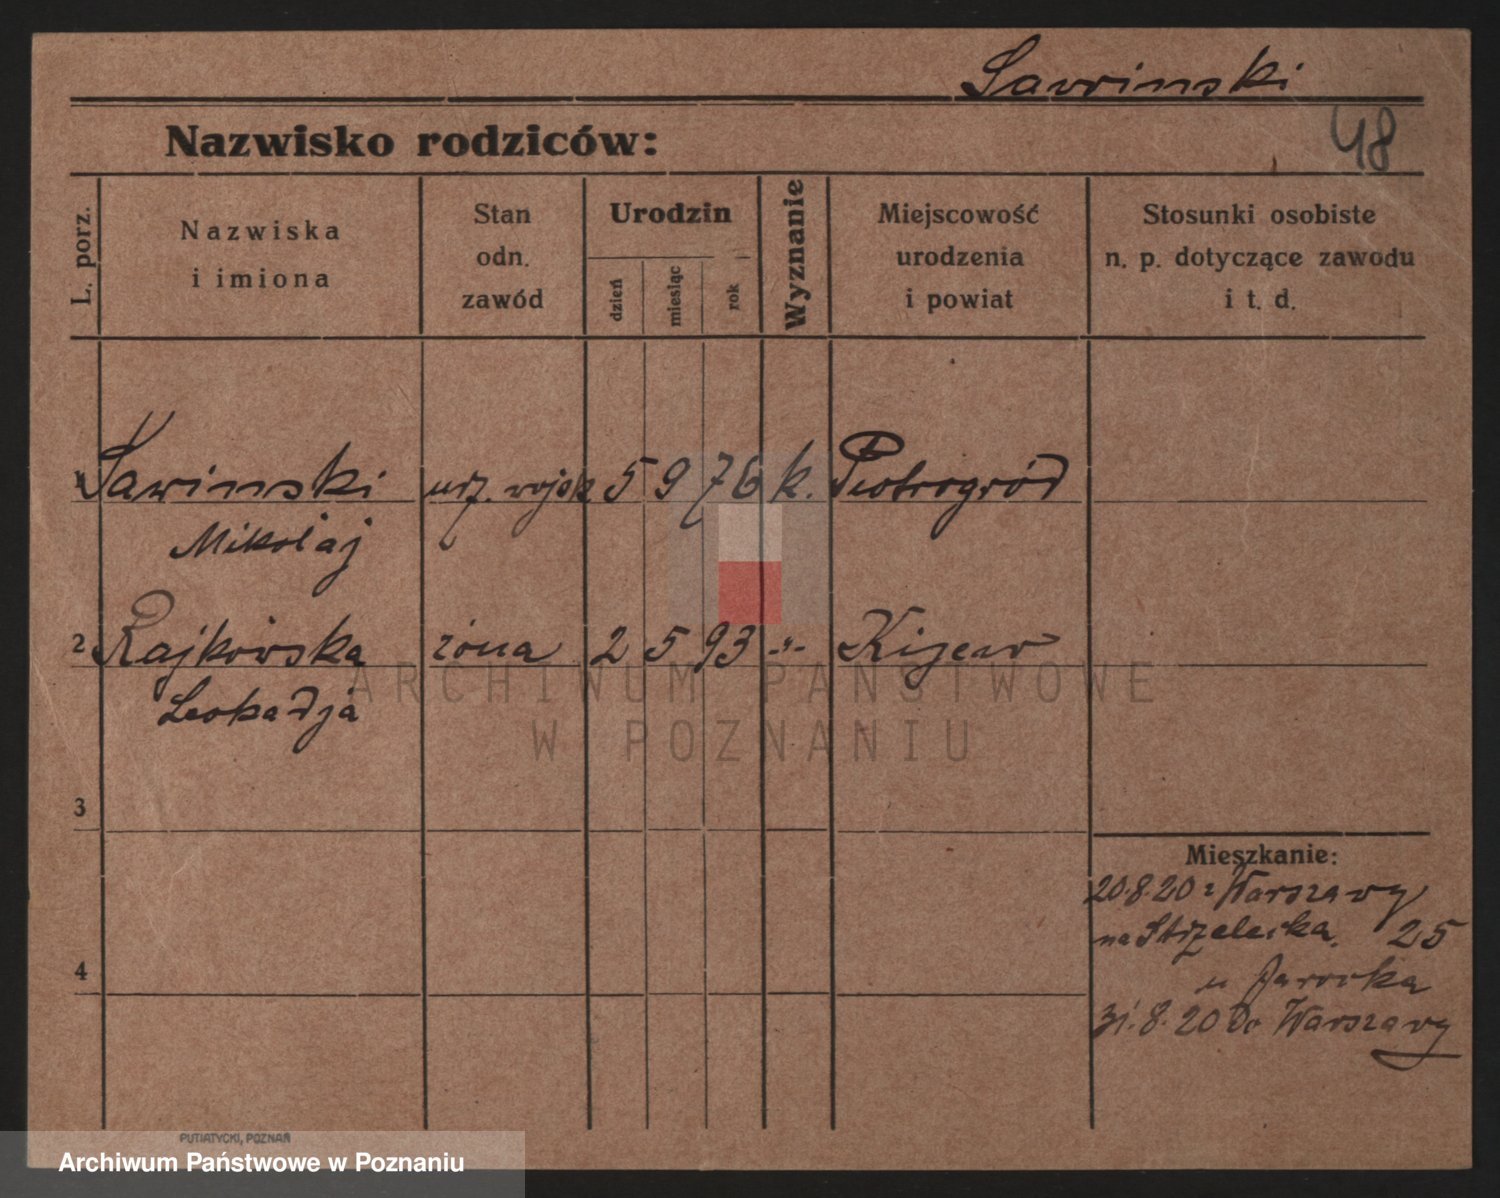 Sawinski
48
Nazwisko rodziców:
L. porz.
Nazwiska
i imiona
Stan
odn.
zawód
Urodzin
dzień
miesiąc
rok
Wyznanie
Miejscowość
urodzenia
i powiat
Stosunki osobiste
n. p. dotyczące zawodu
i t. d.
1 Sawinski urz. wojsk 5 9 76 k. Piotrogród
Mikołaj
2 Rajkowska żona 2 5 93 -"- Kijew
Leokadja
3
4
Mieszkanie:
20.8.20 z Warszawy
na Strzelecka. 25
u
31.8.20 do Warszawy
PUTIATYCKI, POZNAŃ
ARCHIWUM PAŃSTWOWE
W POZNANIU
Archiwum Państwowe w Poznaniu